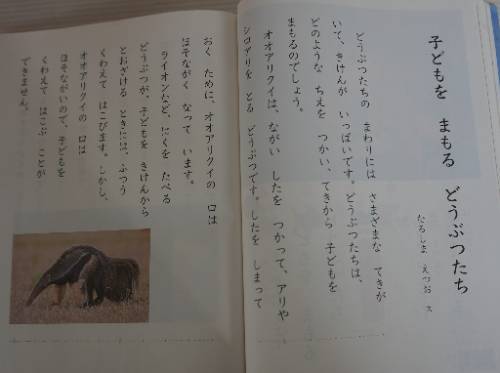 子どもを まもる どうぶつたち
なるしま えつお 文
どうぶつたちの まわりには さまざまな てきが
いて、きけんが いっぱいです。どうぶつたちは、
どのような ちえを つかい、てきから 子どもを
まもるのでしょう。
オオアリクイは、ながい したを つかって、アリや
シロアリを とる どうぶつです。したを しまって
おく ために、オオアリクイの 口は
ほそながく なって います。
ライオンなど、にくを たべる
どうぶつが、子どもを きけんから
とおざける ときには、ふつう
くわえて はこびます。しかし、
オオアリクイの 口は
ほそながいので、子どもを
くわえて はこぶ ことが
できません。